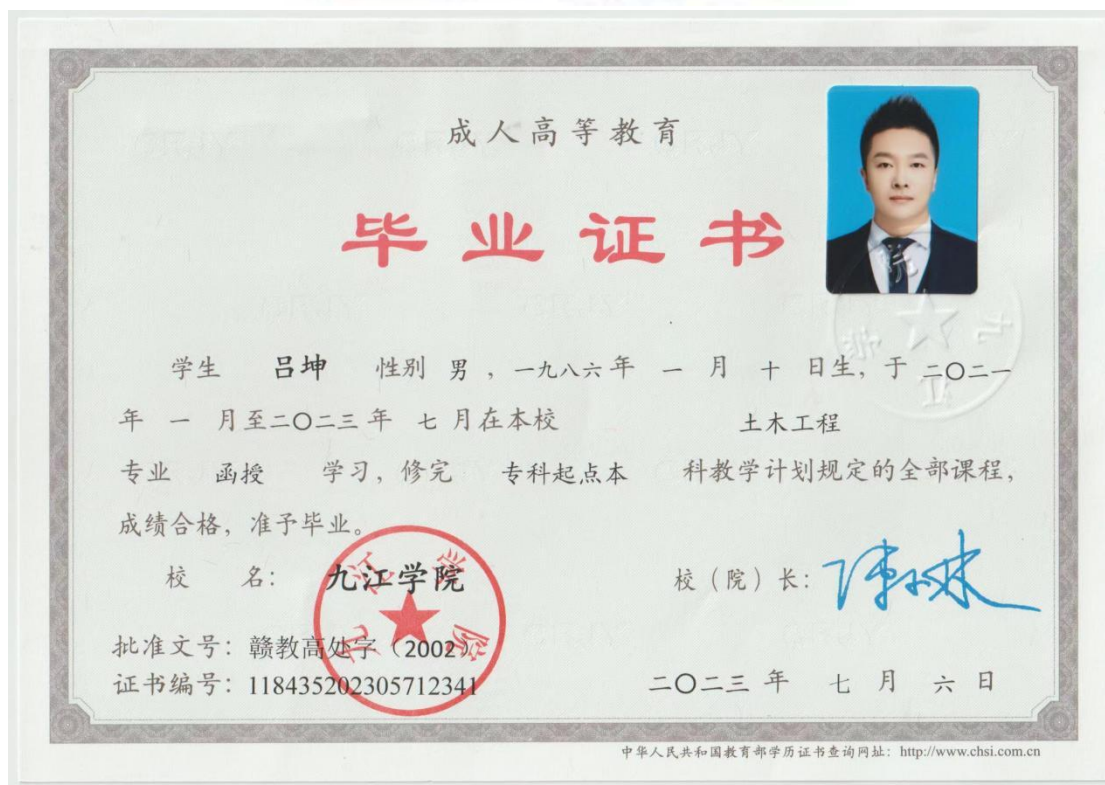 成人高等教育
毕业证书
学生 吕坤 性别 男，一九八六年 一 月 十 日生，于 二〇二一
年 一 月至二〇二三年 七 月在本校 土木工程
专业 函授 学习，修完 专科起点本 科教学计划规定的全部课程，
成绩合格，准予毕业。
校 名：九江学院 校（院）长：
九江学院
批准文号：赣教高处字（2002）
证书编号：118435202305712341 二〇二三 年 七 月 六 日
中华人民共和国教育部学历证书查询网址：http://www.chsi.com.cn